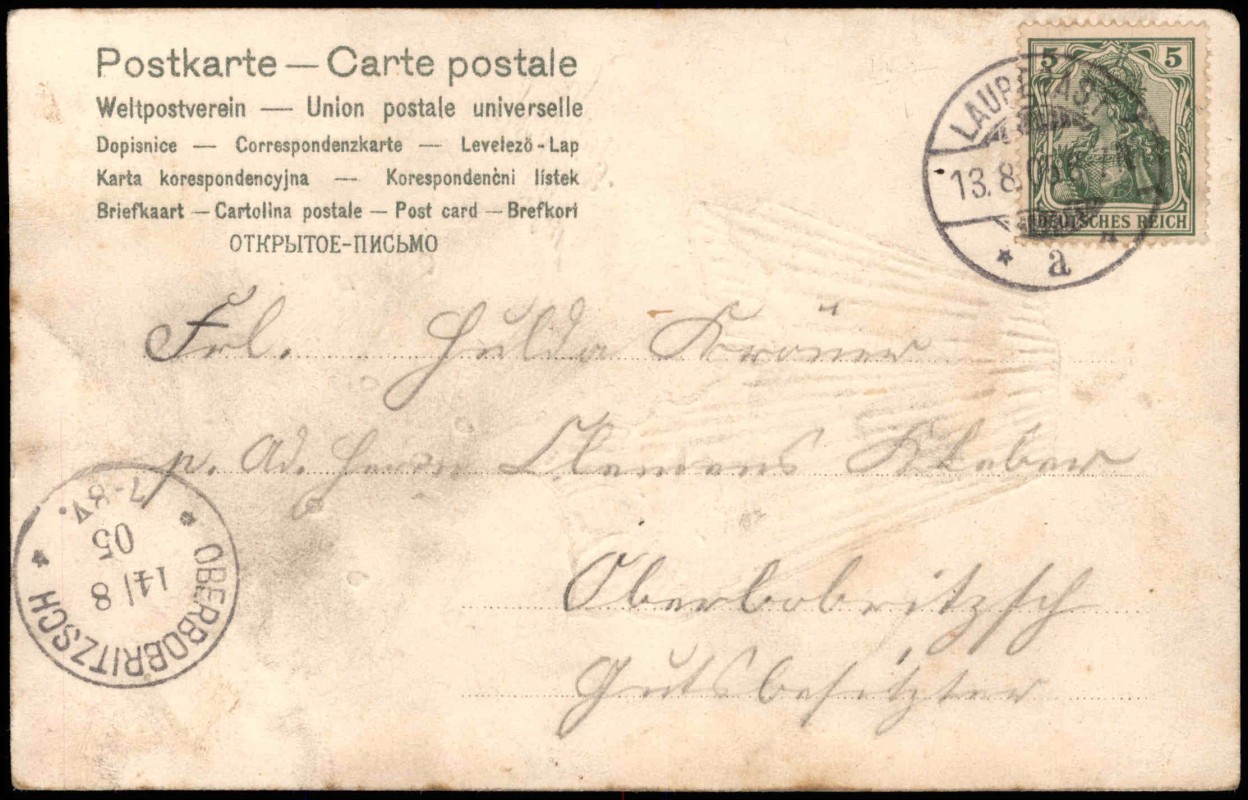 Postkarte — Carte postale
Weltpostverein — Union postale universelle
Dopisnice — Correspondenzkarte — Levelező-Lap
Karta korespondencyjna — Korespondenčni lístek
Briefkaart — Cartolina postale — Post card — Brefkort
ОТКРЫТОЕ-ПИСЬМО
5 5
DEUTSCHES REICH
13.8.05.
a
Frl. Hulda Kröner
p. Ad. Herrn Clemens Kleber
Oberbobritzsch
Gutsbesitzter
OBERBOBRITZSCH
14/8
05
7-8V.